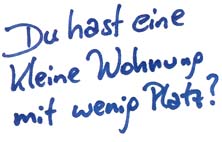 Du hast eine
kleine Wohnung
mit wenig Platz?